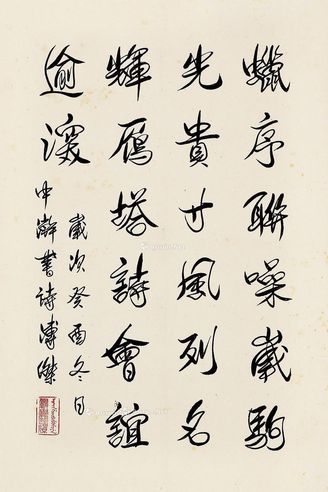 蠟序聯噪歲駒
光貴廿風列名
輝雁塔詩會誼
逾深
歲次癸酉冬日
中澣書詩溥傑